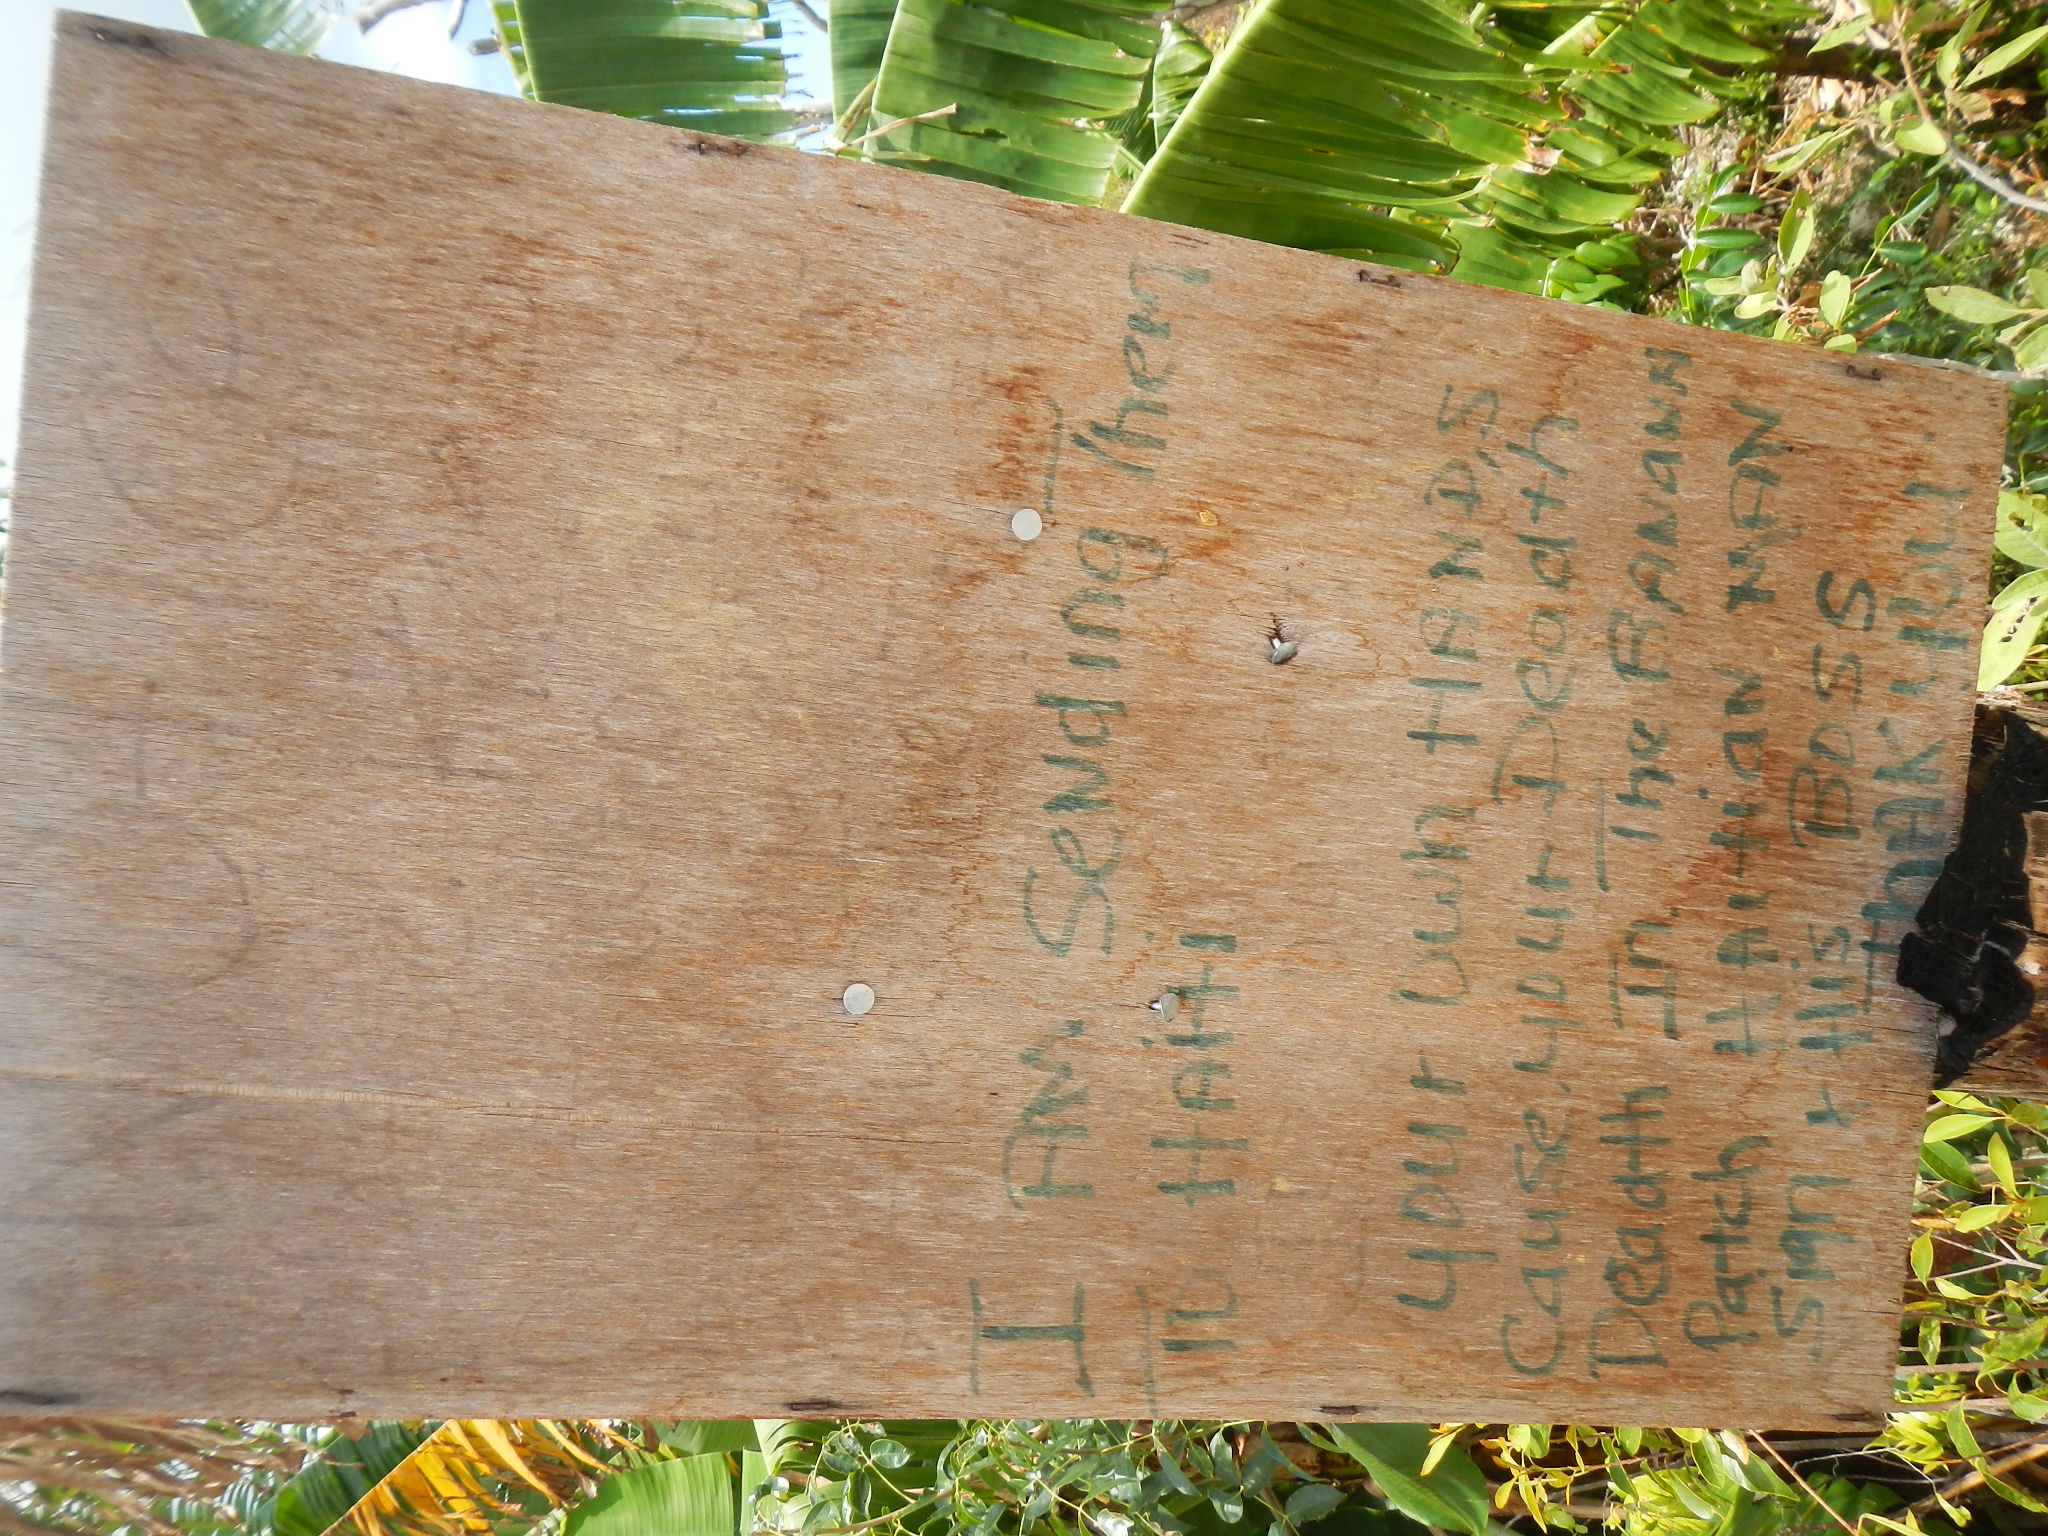 I AM Sending Them
To HAiti
Your Own HAND'S
Cause, your Death
Death In The BANANA
Patch HAitiAN MAN
Sign + His BOSS
thAK you.